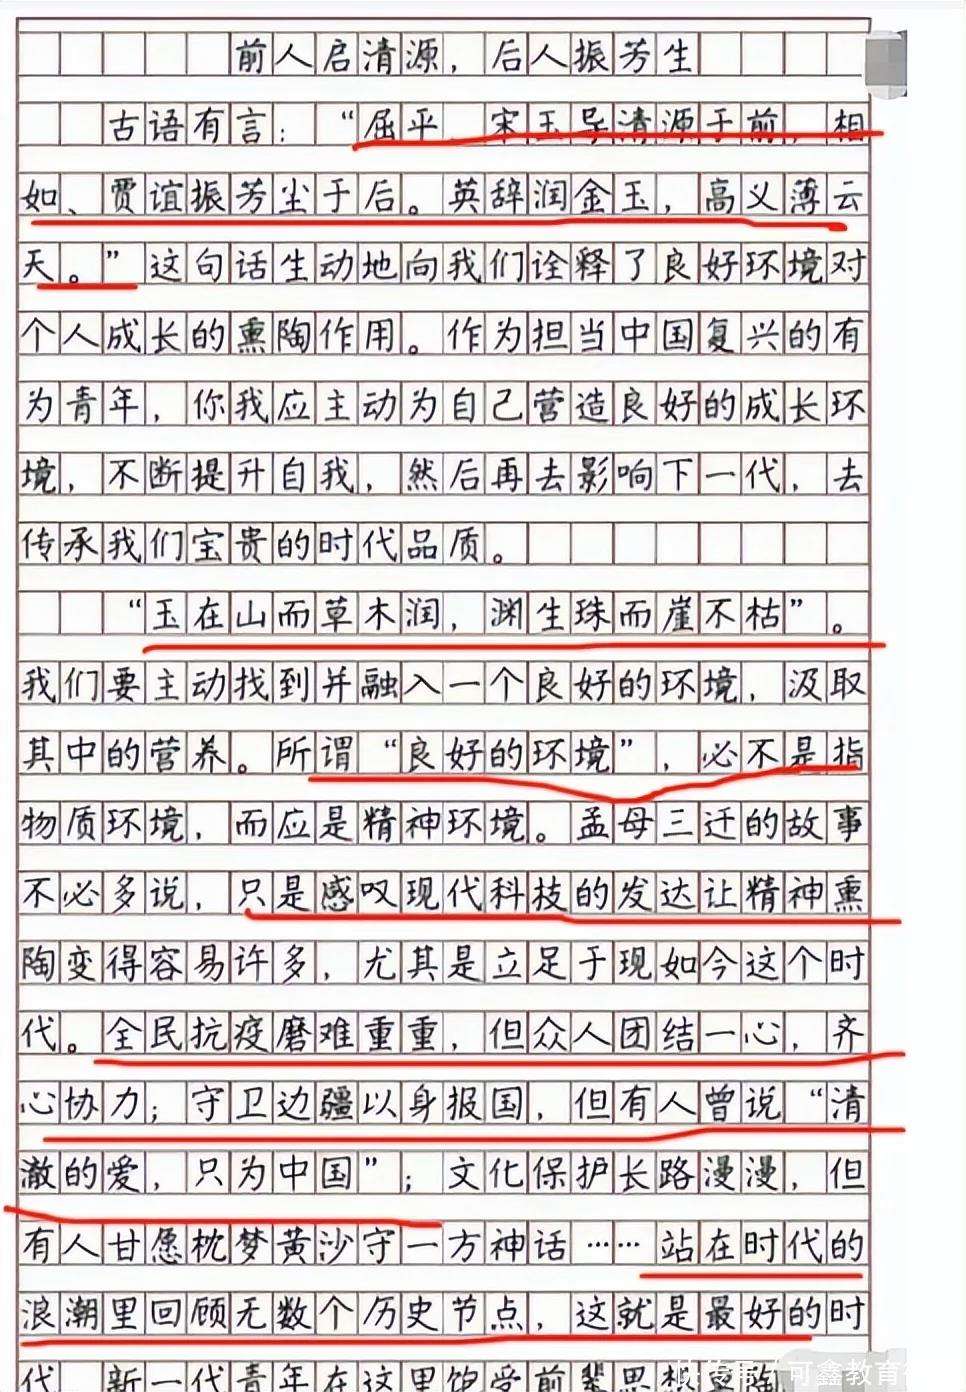 前人启清源，后人振芳生
古语有言：“屈平、宋玉导清源于前，相
如、贾谊振芳尘于后。英辞润金玉，高义薄云
天。”这句话生动地向我们诠释了良好环境对
个人成长的熏陶作用。作为担当中国复兴的有
为青年，你我应主动为自己营造良好的成长环
境，不断提升自我，然后再去影响下一代，去
传承我们宝贵的时代品质。
“玉在山而草木润，渊生珠而崖不枯”。
我们要主动找到并融入一个良好的环境，汲取
其中的营养。所谓“良好的环境”，必不是指
物质环境，而应是精神环境。孟母三迁的故事
不必多说，只是感叹现代科技的发达让精神熏
陶变得容易许多，尤其是立足于现如今这个时
代。全民抗疫磨难重重，但众人团结一心，齐
心协力；守卫边疆以身报国，但有人曾说“清
澈的爱，只为中国”；文化保护长路漫漫，但
有人甘愿枕梦黄沙守一方神话……站在时代的
浪潮里回顾无数个历史节点，这就是最好的时
代，新一代青年在这里饱受前辈思想
可鑫教育